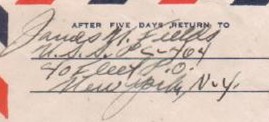 AFTER FIVE DAYS RETURN TO
James M. Fields
U.S.S. PC-464
℅ Fleet P.O.
New York, N.Y.